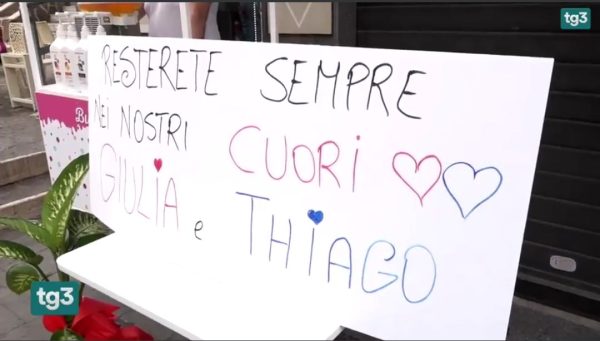 tg3
RESTERETE SEMPRE
NEI NOSTRI CUORI
GIULIA e THIAGO
Bu
tg3